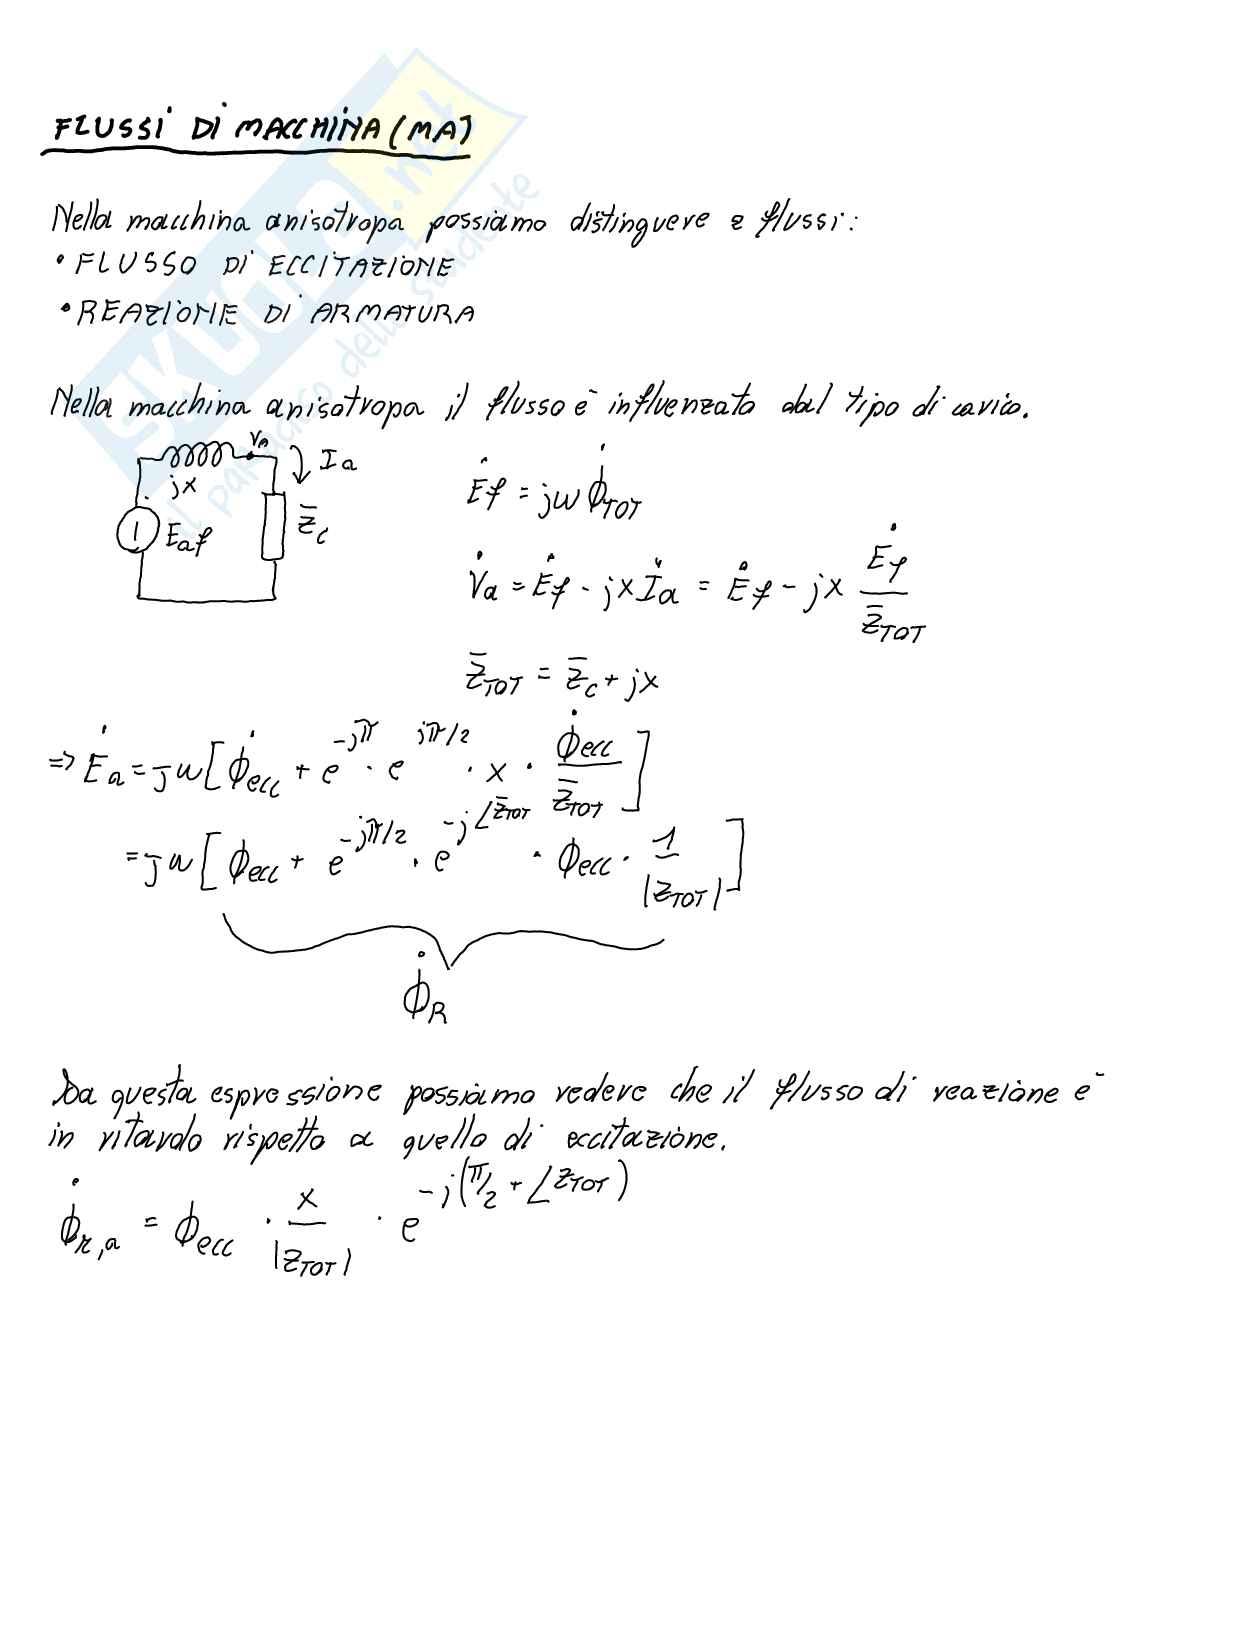 FLUSSI DI MACCHINA (MA)
Nella macchina anisotropa possiamo distinguere 2 flussi:
• FLUSSO DI ECCITAZIONE
• REAZIONE DI ARMATURA
Nella macchina anisotropa il flusso è influenzato dal tipo di carico.
Va Ia
jx
Eaf Z̄c
Ėf = jω ϕ̇TOT
V̇a = Ėf - jx İa = Ėf - jx Ėf / Z̄TOT
Z̄TOT = Z̄c + jx
=> Ėa = jω [ϕ̇ecc + e^-jπ · e^jπ/2 · x · ϕ̇ecc / Z̄TOT]
= jω [ϕecc + e^-jπ/2 · e^-j∠Z̄TOT · ϕecc · 1 / |ZTOT|]
ϕ̇R
Da questa espressione possiamo vedere che il flusso di reazione è
in ritardo rispetto a quello di eccitazione.
ϕ̇r,a = ϕecc · x / |ZTOT| · e^-j(π/2 + ∠ZTOT)
SKUOLA.net
il paradiso dello studente